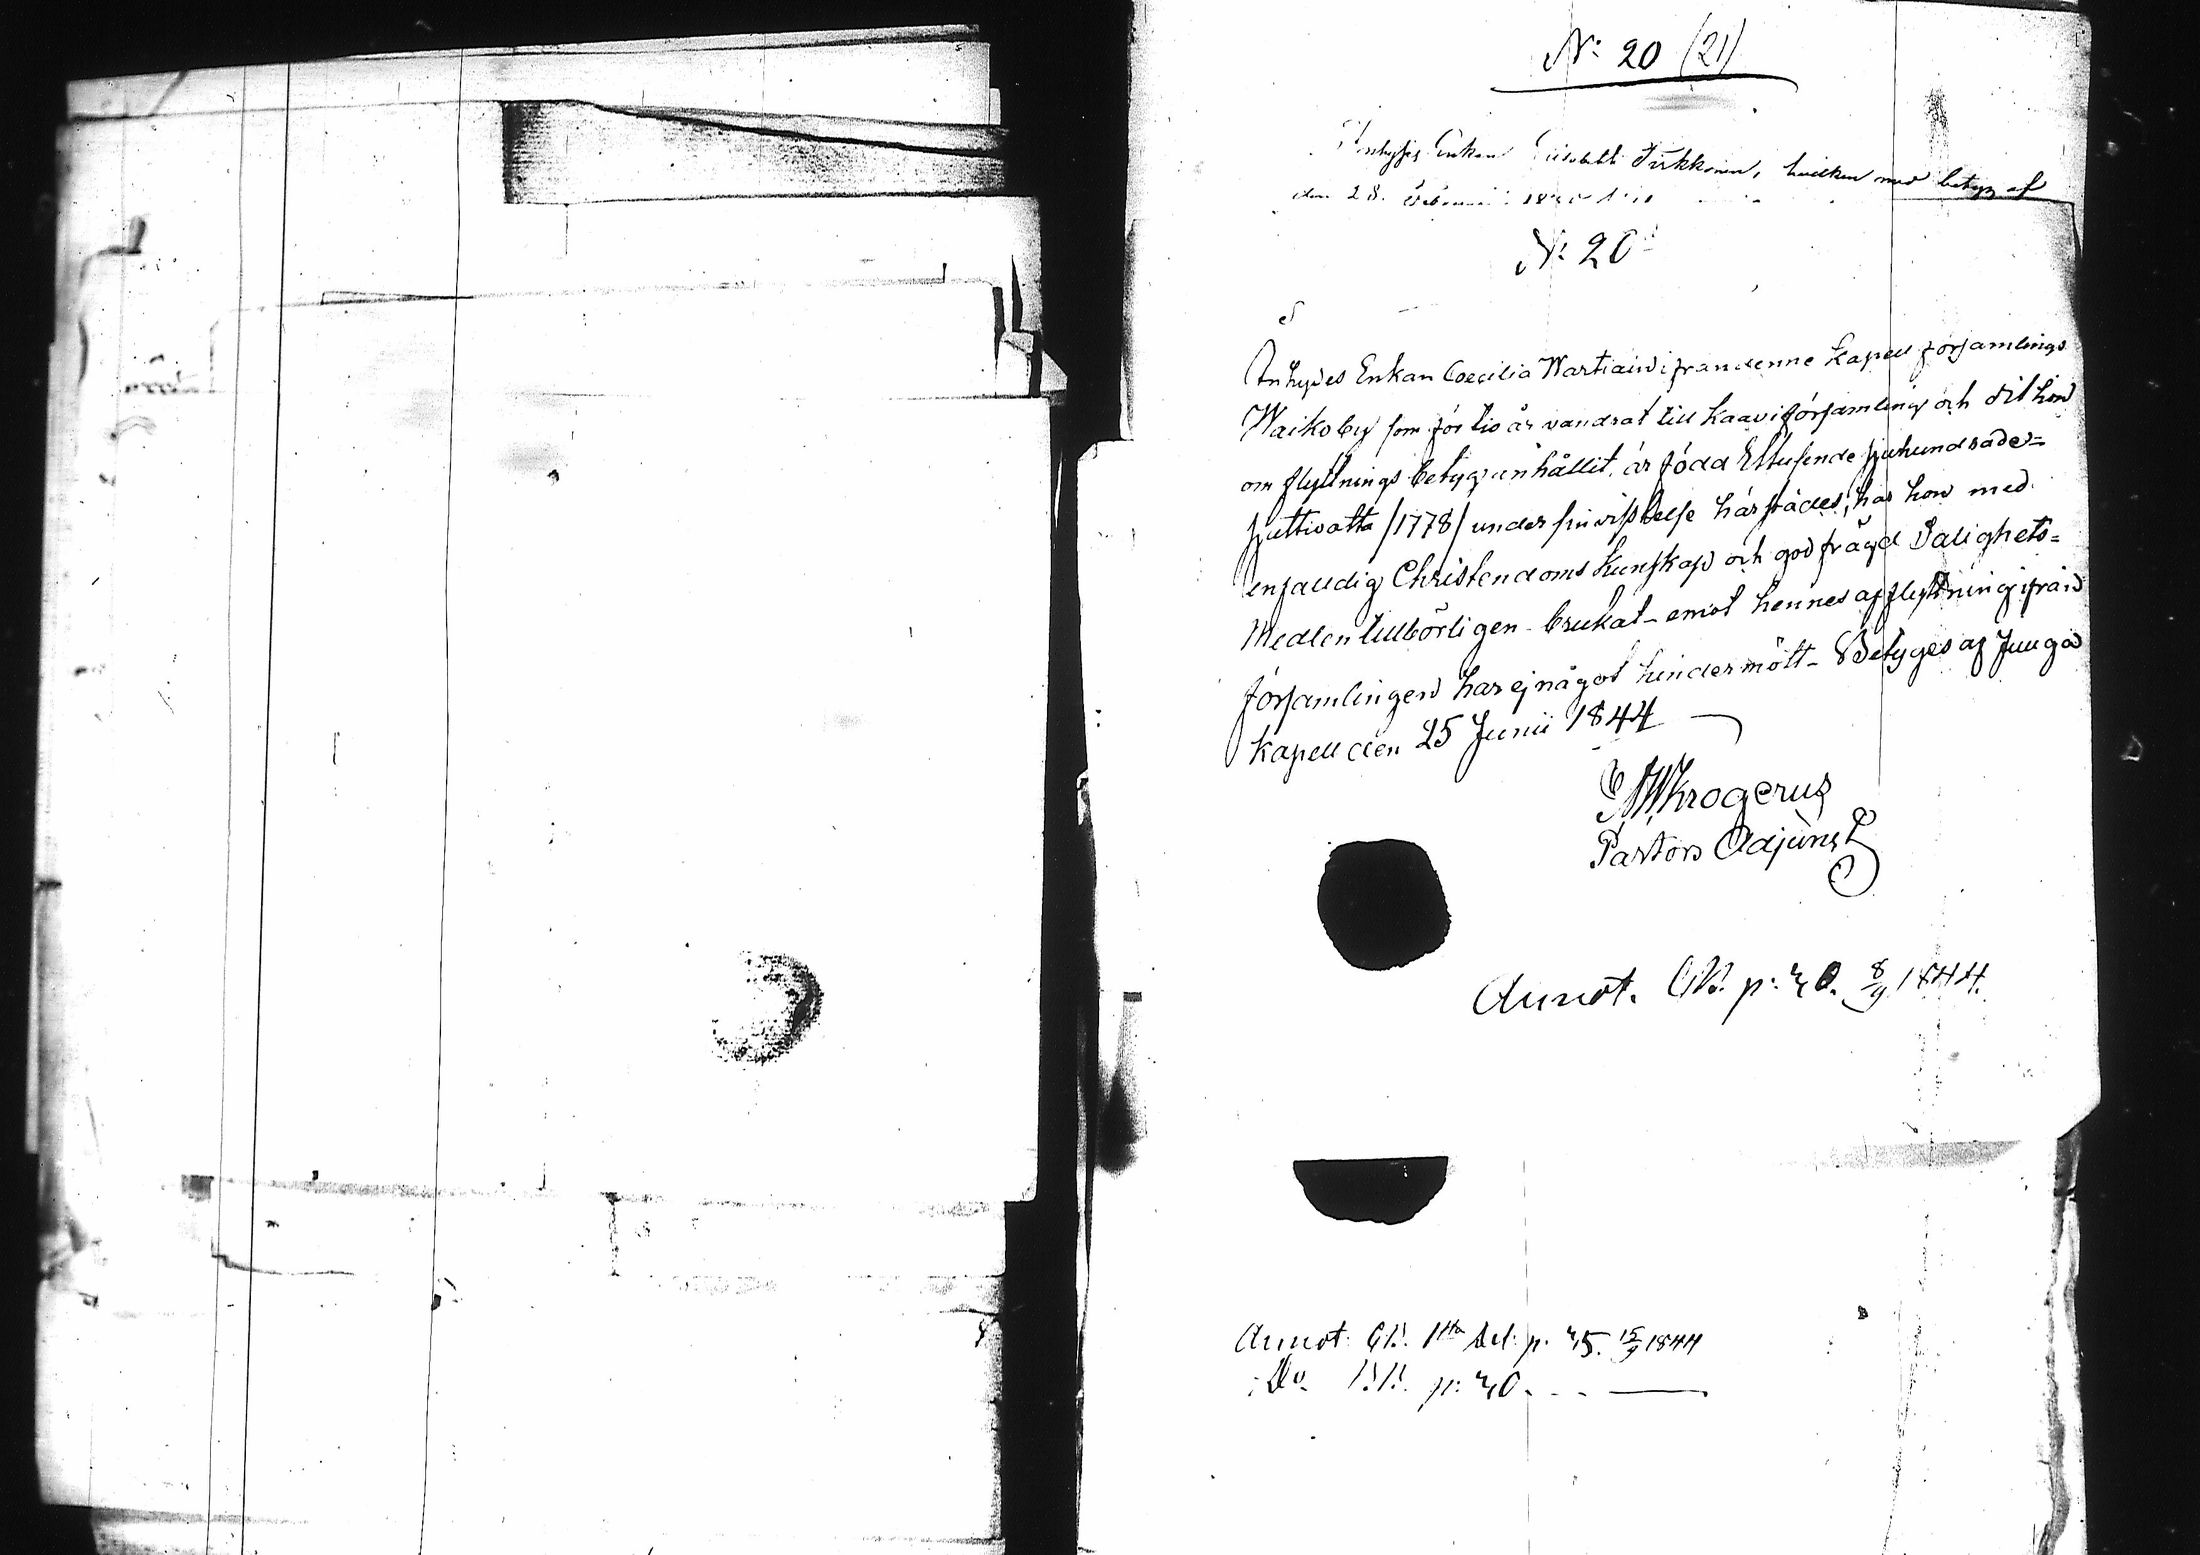 N: 20 (21)
Inhyses Enkan Elisabeth Tirkkonen, hvilken med betyg af
den 28. Februarii
N: 20
Inhyses Enkan Coecilia Wartiain ifran denne Kapell församlings
Waiko by som för tio år vandrat till Kaavi församling och dit hon
om flyttnings betyg anhållit, är född Ettusende sjuhundrade=
sjuttioåtta /1778/ under sin vistelse härstädes, har hon med
enfalldig Christendoms Kunskap och god frägd Salighets=
Medlen tillbörligen brukat - emot hennes afflyttning ifrån
församlingen har ej något hinder mött - Betyges af Juuga
Kapell den 25 Junii 1844
Krogerus
Pastors Adjunct
Annot. CB. p: 40. 8/9 1844.
Annot: CB. 1sta Del: p. 45. 15/9 1844
Do. p: 40. - - —